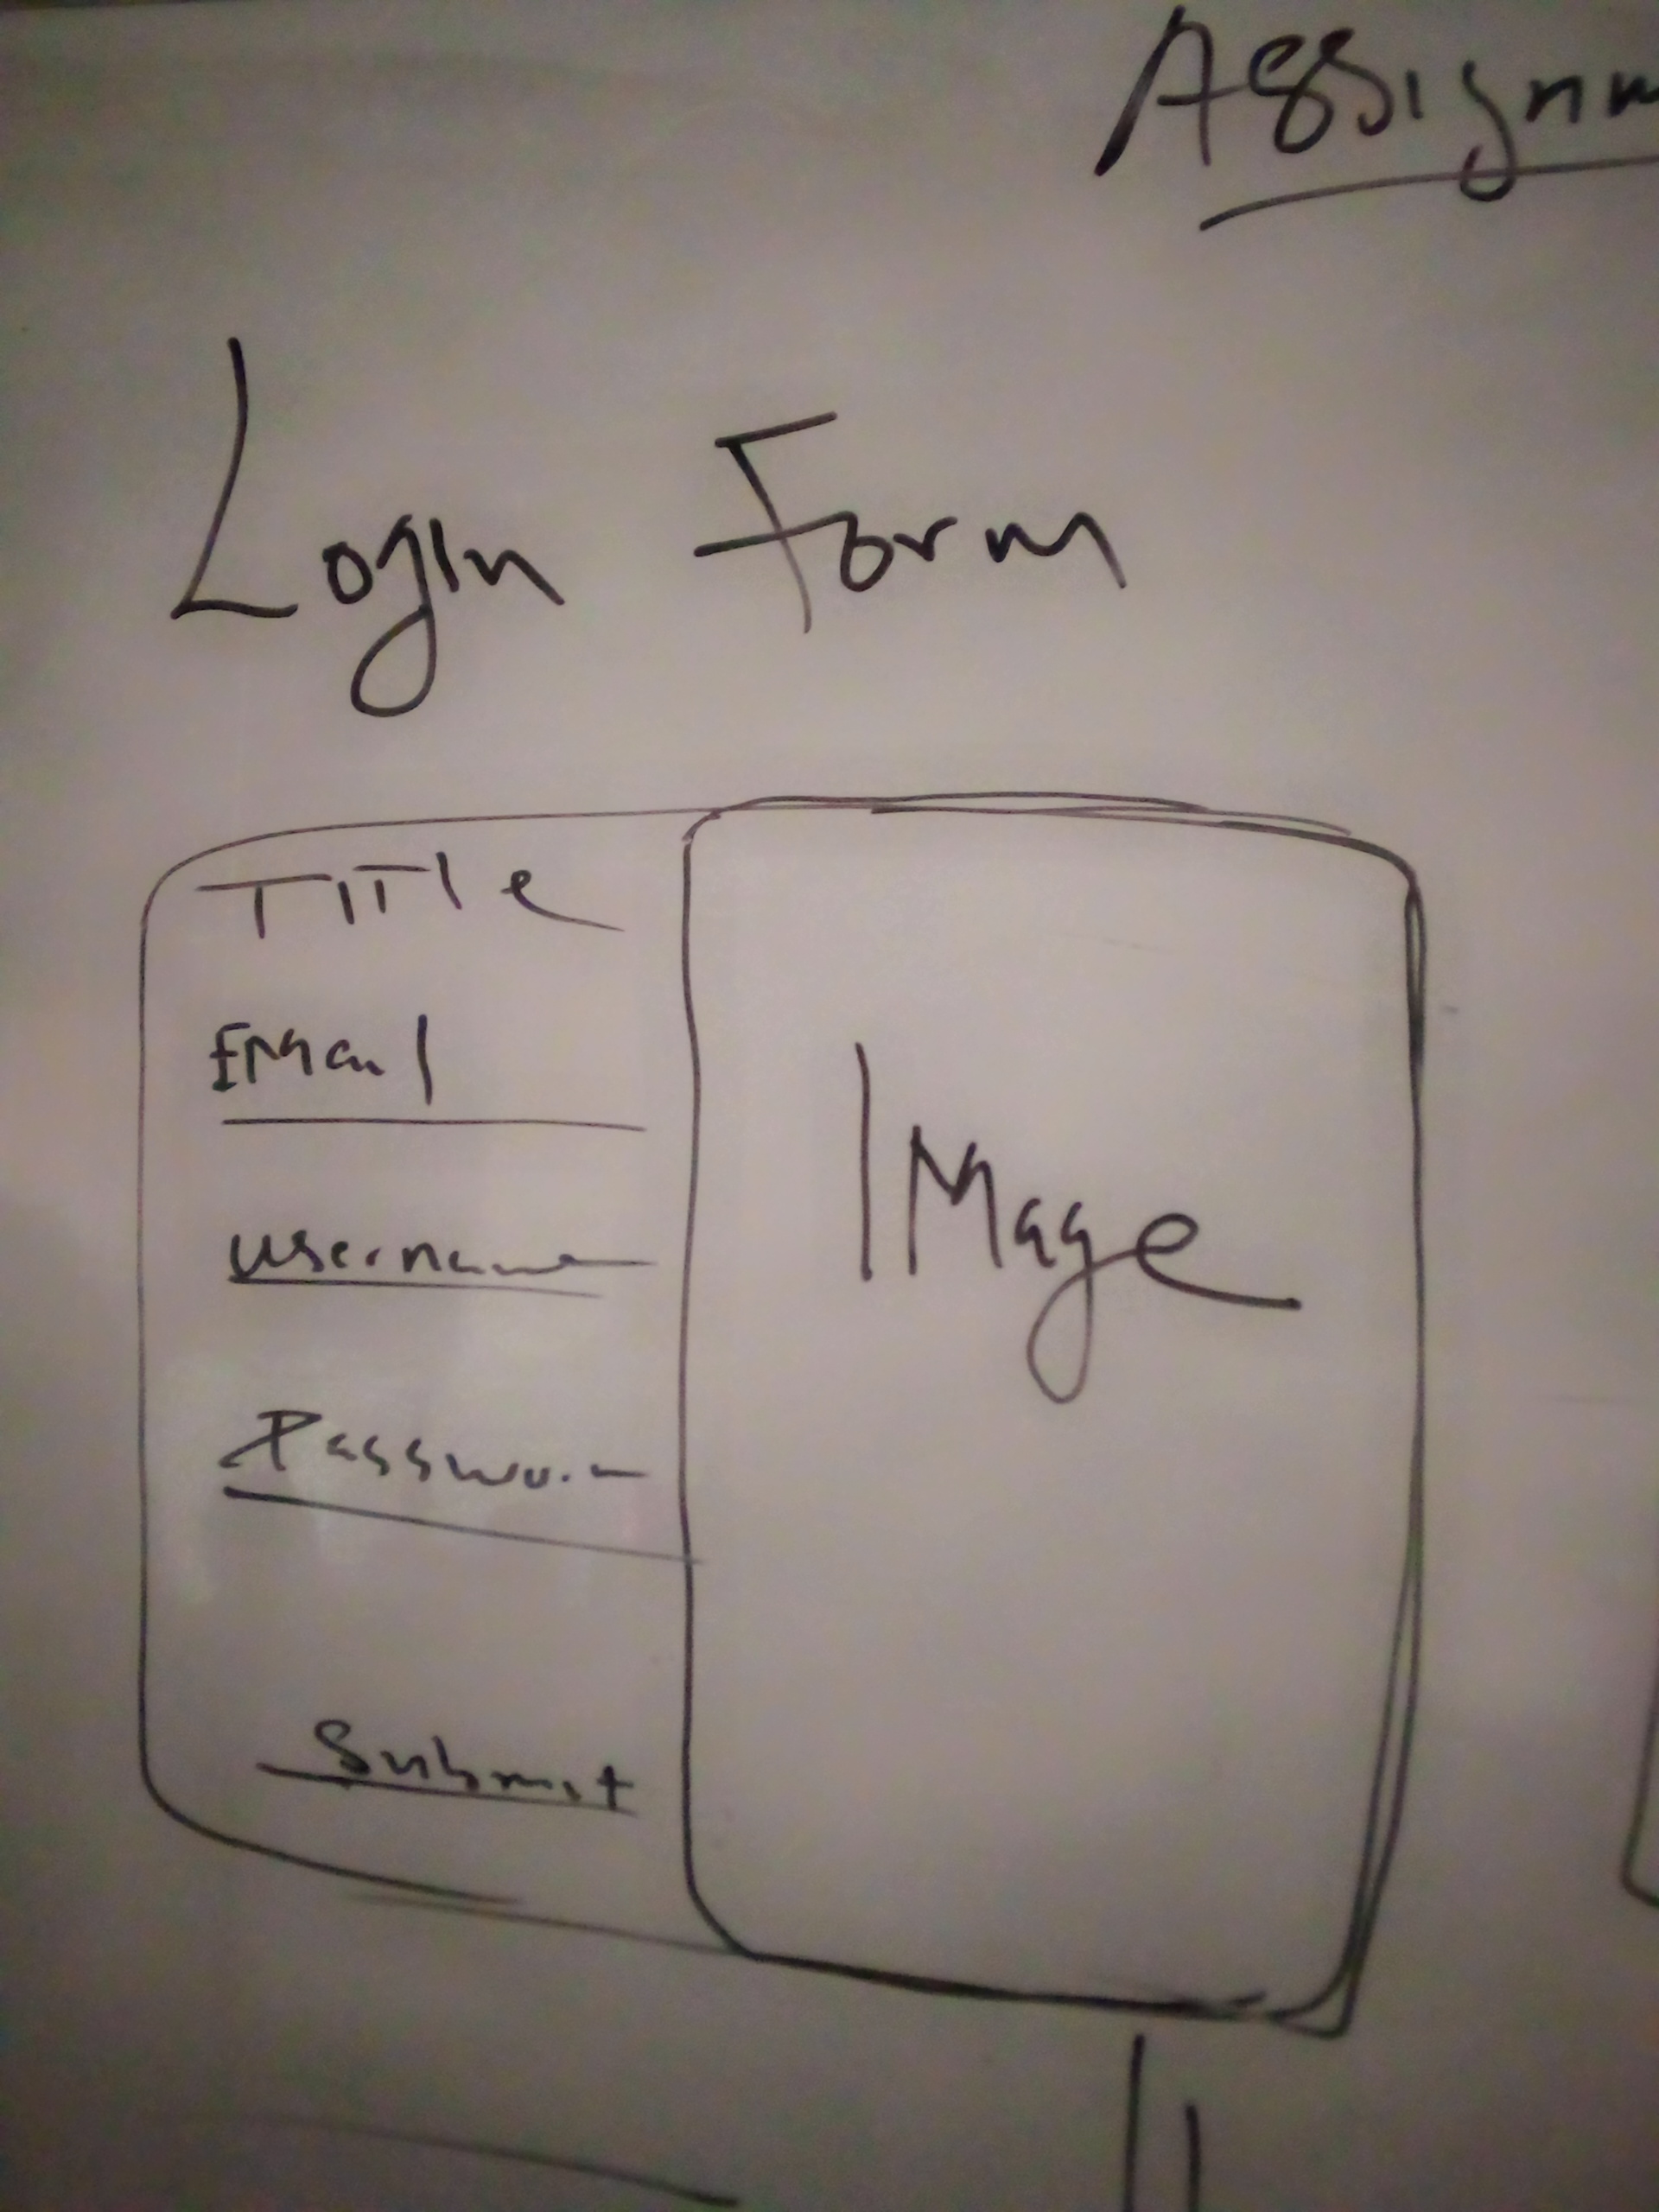 Assignm
Login Form
Title
Email
username
Passwor
Image
Submit